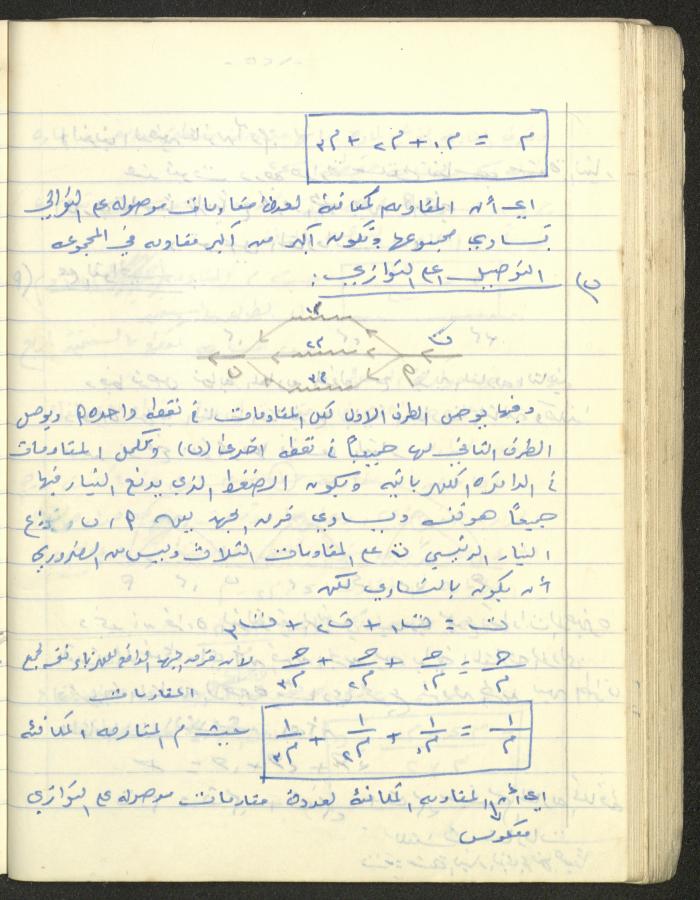 م = م١ + م٢ + م٣
اي أن المقاومه المكافئة لعدة مقاومات موصوله على التوالي
تساوي مجموعها وتكون أكبر من أكبر مقاومه في المجموعه
ب) التوصيل على التوازي :
م١
م٢
م٣
ب
م
ت
وفيها يوصل الطرف الاول لكل المقاومات في نقطه واحده م ويوصل
الطرف الثاني لها جميعاً في نقطه اخرى (ب) وتكمل المقاومات
في الدائره الكهربائيه ويكون الضغط الذي يدفع التيار فيها
جميعاً هو نفسه ويساوي فرق الجهد بين م ، ب ويوزع
التيار الرئيسي ت على المقاومات الثلاث وليس من الضروري
أن يكون بالتساوي لكن
ت = ت١ + ت٢ + ت٣
جـ/م = جـ/م١ + جـ/م٢ + جـ/م٣ لان فرق الجهد الدافع للكهرباء نفسه لجميع
المقاومات
١/م = ١/م١ + ١/م٢ + ١/م٣ حيث م المقاومه المكافئه
اي أن المقاومه المكافئة لعدة مقاومات موصوله على التوازي
معكوس